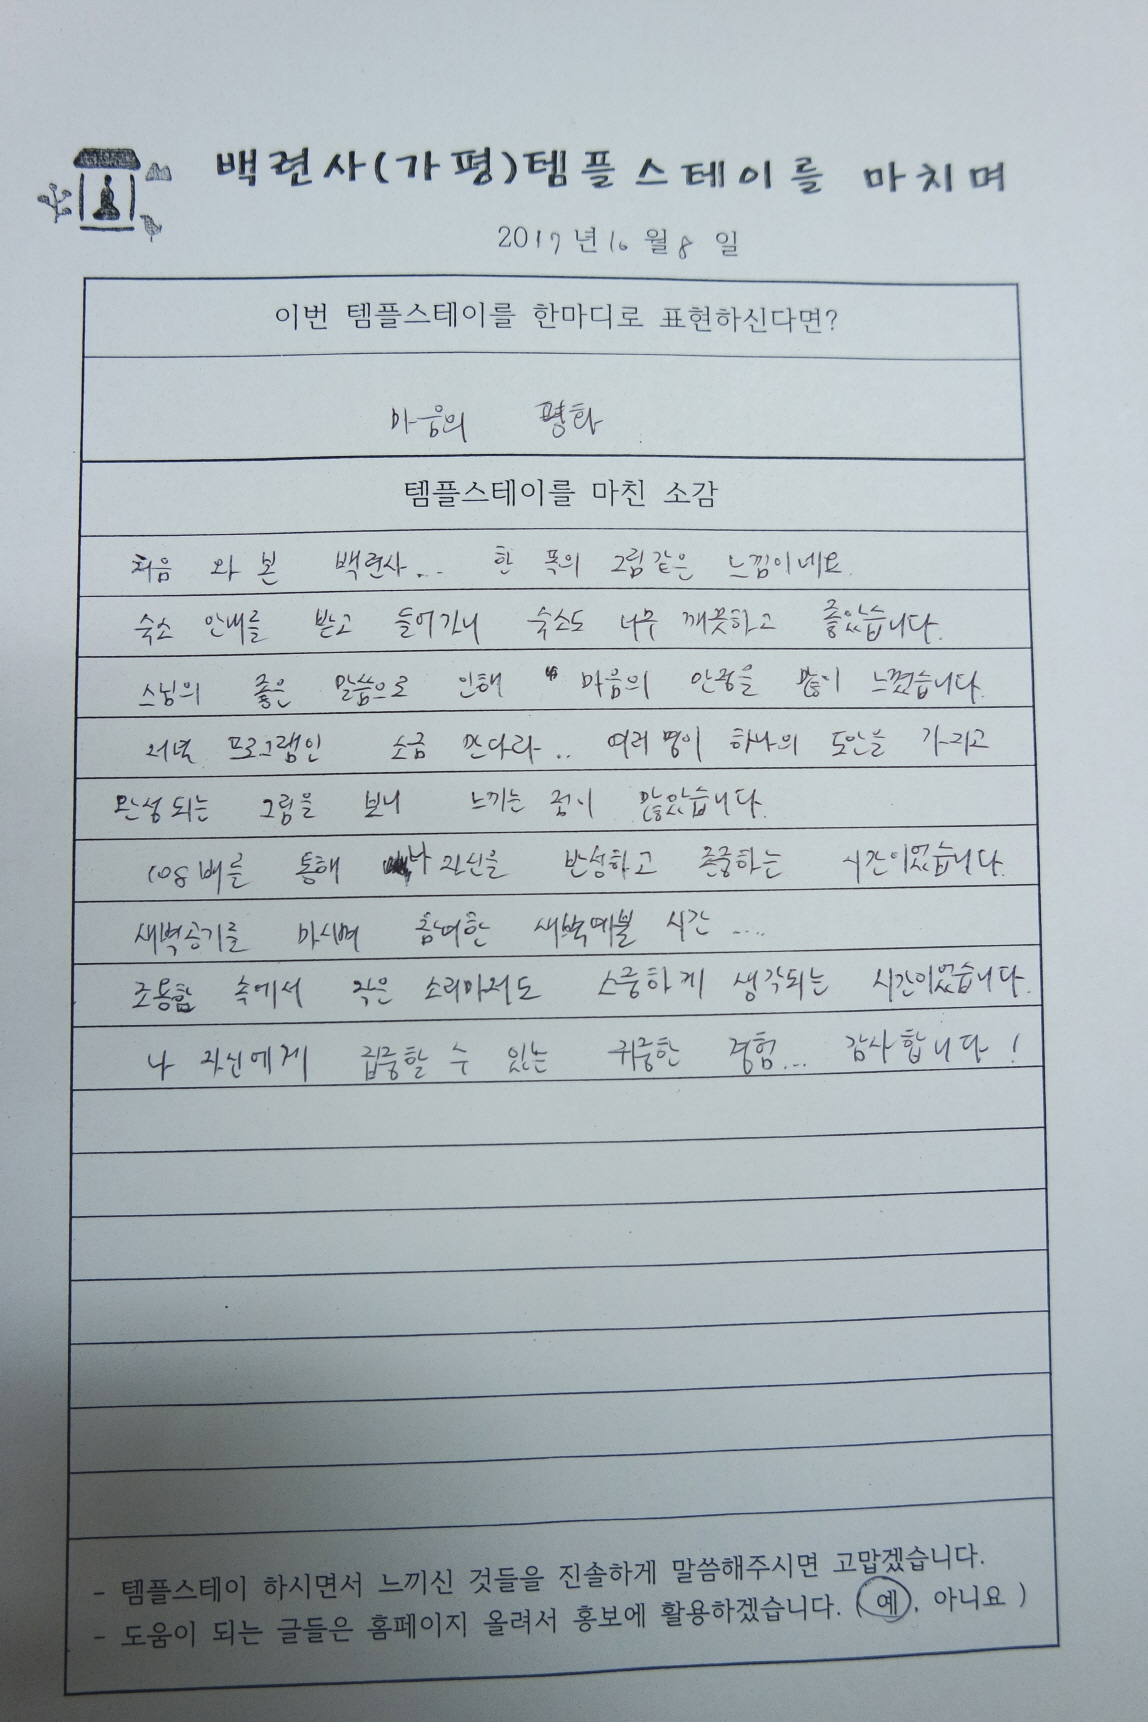 백련사(가평)템플스테이를 마치며
2017년 10월 8일
이번 템플스테이를 한마디로 표현하신다면?
마음의 평화
템플스테이를 마친 소감
처음 와 본 백련사... 한 폭의 그림같은 느낌이네요.
숙소 안내를 받고 들어가니 숙소도 너무 깨끗하고 좋았습니다.
스님의 좋은 말씀으로 인해 마음의 안정을 많이 느꼈습니다.
저녁 프로그램인 소금 만다라.. 여러명이 하나의 도안을 가지고
완성되는 그림을 보니 느끼는 점이 많았습니다.
108배를 통해 나 자신을 반성하고 존중하는 시간이었습니다.
새벽공기를 마시며 참여한 새벽예불 시간....
조용함 속에서 작은 소리마저도 소중하게 생각되는 시간이었습니다.
나 자신에게 집중할 수 있는 귀중한 경험... 감사합니다!
- 템플스테이 하시면서 느끼신 것들을 진솔하게 말씀해주시면 고맙겠습니다.
- 도움이 되는 글들은 홈페이지 올려서 홍보에 활용하겠습니다. (예, 아니요)